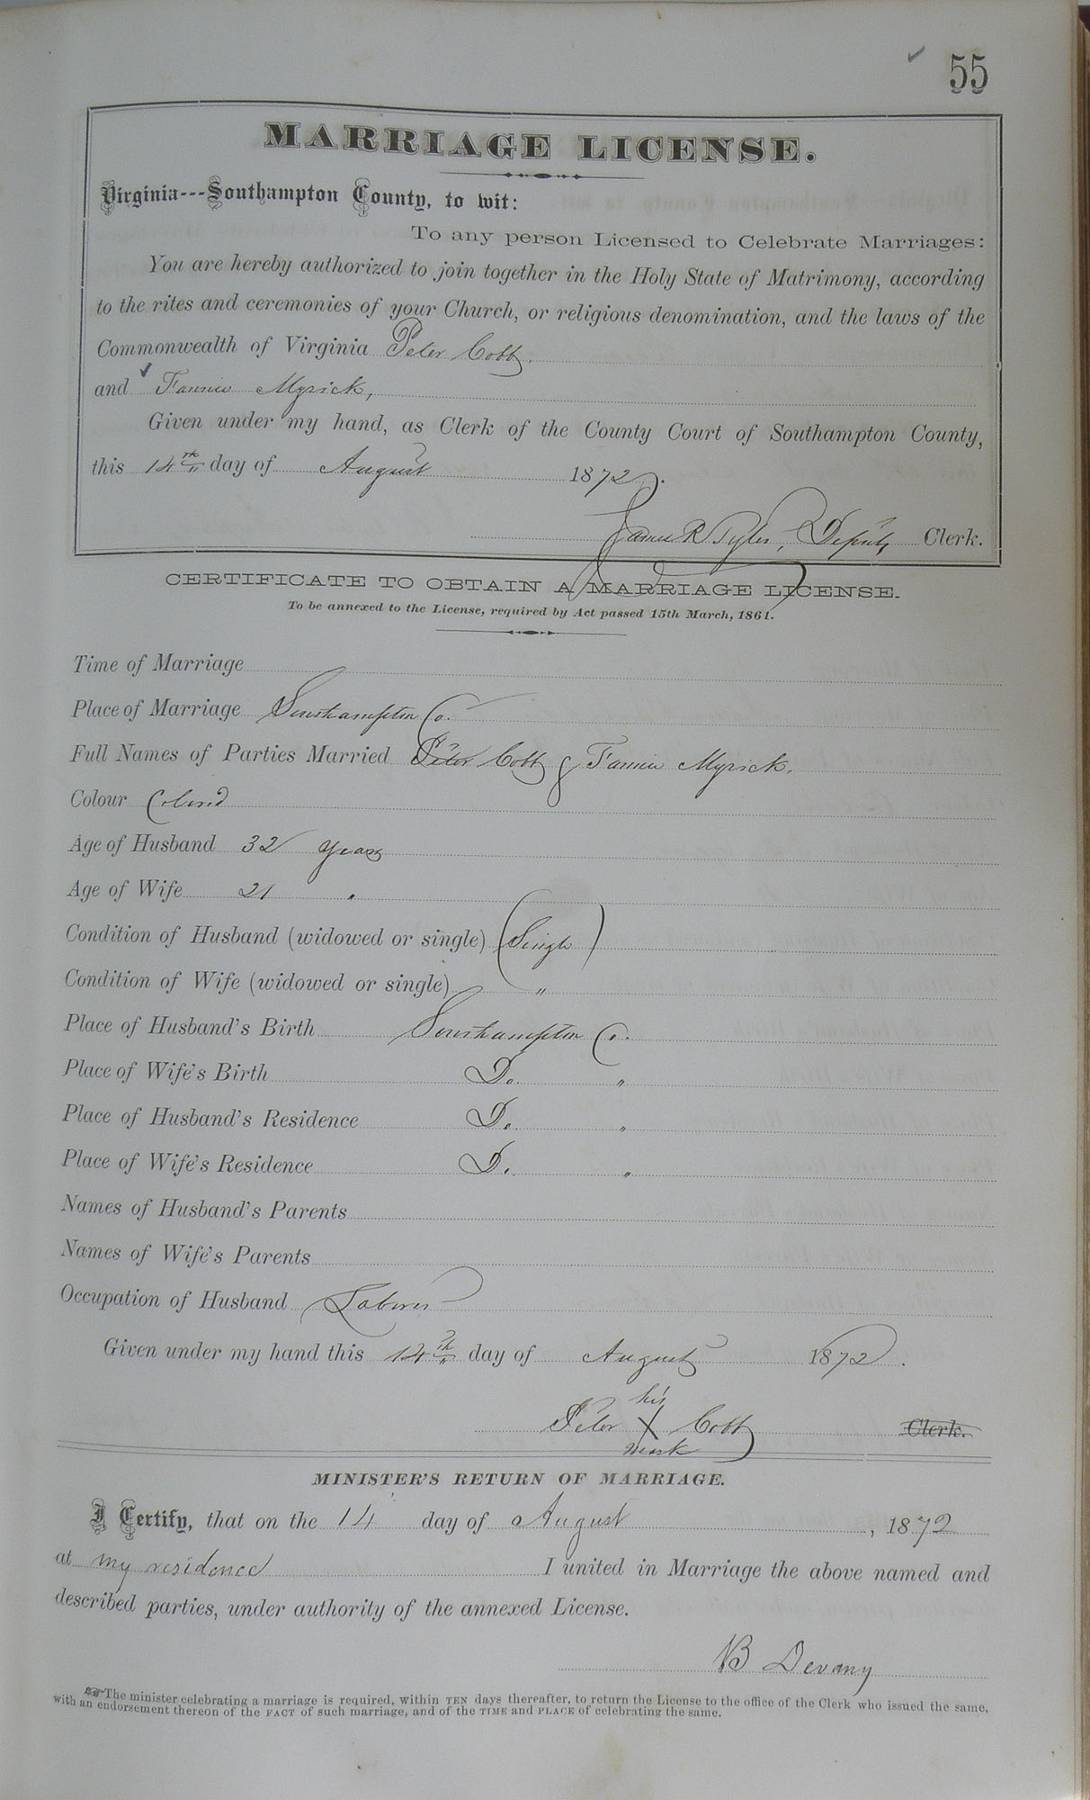 55
MARRIAGE LICENSE.
Virginia---Southampton County, to wit:
To any person Licensed to Celebrate Marriages:
You are hereby authorized to join together in the Holy State of Matrimony, according
to the rites and ceremonies of your Church, or religious denomination, and the laws of the
Commonwealth of Virginia Peter Cobb.
and Fannie Myrick,
Given under my hand, as Clerk of the County Court of Southampton County,
this 14th day of August 1872.
James R Tyler, Deputy Clerk.
CERTIFICATE TO OBTAIN A MARRIAGE LICENSE.
To be annexed to the License, required by Act passed 15th March, 1861.
Time of Marriage
Place of Marriage Southampton Co.
Full Names of Parties Married Peter Cobb & Fannie Myrick.
Colour Colored
Age of Husband 32 years
Age of Wife 21 "
Condition of Husband (widowed or single) (Single)
Condition of Wife (widowed or single) "
Place of Husband's Birth Southampton Co.
Place of Wife's Birth Do. "
Place of Husband's Residence Do. "
Place of Wife's Residence Do. "
Names of Husband's Parents
Names of Wife's Parents
Occupation of Husband Laborer
Given under my hand this 14th day of August 1872.
his
Peter X Cobb Clerk.
mark
MINISTER'S RETURN OF MARRIAGE.
I Certify, that on the 14 day of August, 1872
at my residence I united in Marriage the above named and
described parties, under authority of the annexed License.
B Devany
☞The minister celebrating a marriage is required, within TEN days thereafter, to return the License to the office of the Clerk who issued the same,
with an endorsement thereon of the FACT of such marriage, and of the TIME and PLACE of celebrating the same.